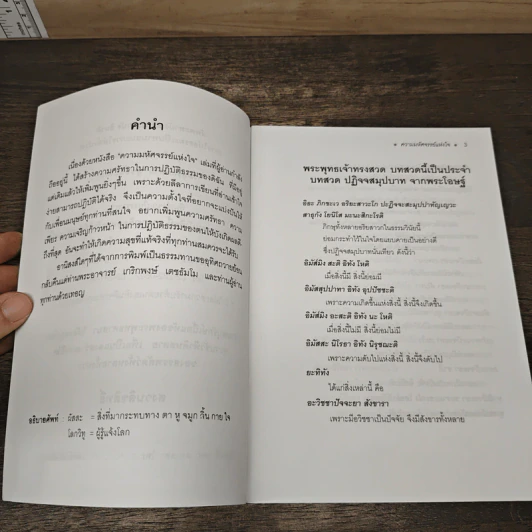 คำนำ
เนื่องด้วยหนังสือ "ความมหัศจรรย์แห่งใจ" เล่มที่ผู้อ่านกำลัง
ถืออยู่นี้ ได้สร้างความศรัทธาในการปฏิบัติธรรมของดิฉัน ที่มีอยู่
แต่เดิมแล้วให้เพิ่มพูนยิ่งๆขึ้น เพราะด้วยลีลาการเขียนที่อ่านเข้าใจ
ง่ายสามารถปฏิบัติได้จริง จึงเป็นความตั้งใจที่อยากจะแบ่งปันให้
กับเพื่อนมนุษย์ทุกท่านที่สนใจ อยากเพิ่มพูนความศรัทธา ความ
เพียร ความเจริญก้าวหน้า ในการปฏิบัติธรรมของตนให้บังเกิดผลดี
ถึงที่สุด อันจะทำให้เกิดความสุขที่แท้จริงที่ทุกท่านสมควรจะได้รับ
อานิสงส์ใดๆที่ได้จากการพิมพ์เป็นธรรมทานขออุทิศถวายย้อน
กลับคืนแด่ท่านพระอาจารย์ เตชธัมโม และท่านผู้อ่าน
ทุกท่านด้วยเทอญ
อธิบายศัพท์ ผัสสะ = สิ่งที่มากระทบทาง ตา หู จมูก ลิ้น กาย ใจ
โลกวิทู = ผู้รู้แจ้งโลก
ความมหัศจรรย์แห่งใจ 3
พระพุทธเจ้าทรงสวด บทสวดนี้เป็นประจำ
บทสวด ปฏิจจสมุปบาท จากพระโอษฐ์
อิธะ ภิกขะเว อะริยะสาวะโก ปะฏิจจะสมุปปาทัญญูวะ
สาธุกัง โยนิโส มะนะสิกะโรติ
ภิกษุทั้งหลายอริยสาวกในธรรมวินัยนี้
ย่อมกระทำไว้ในใจโดยแยบคายเป็นอย่างดี
ซึ่งปฏิจจสมุปบาทนั่นเทียว ดังนี้ว่า
อิมัสมิง สะติ อิทัง โหติ
เมื่อสิ่งนี้มี สิ่งนี้ย่อมมี
อิมัสสุปปาทา อิทัง อุปปัชชะติ
เพราะความเกิดขึ้นแห่งสิ่งนี้ สิ่งนี้จึงเกิดขึ้น
อิมัสมิง อะสะติ อิทัง นะ โหติ
เมื่อสิ่งนี้ไม่มี สิ่งนี้ย่อมไม่มี
อิมัสสะ นิโรธา อิทัง นิรุชฌะติ
เพราะความดับไปแห่งสิ่งนี้ สิ่งนี้จึงดับไป
ยะทิทัง
ได้แก่สิ่งเหล่านี้ คือ
อะวิชชาปัจจะยา สังขารา
เพราะมีอวิชชาเป็นปัจจัย จึงมีสังขารทั้งหลาย